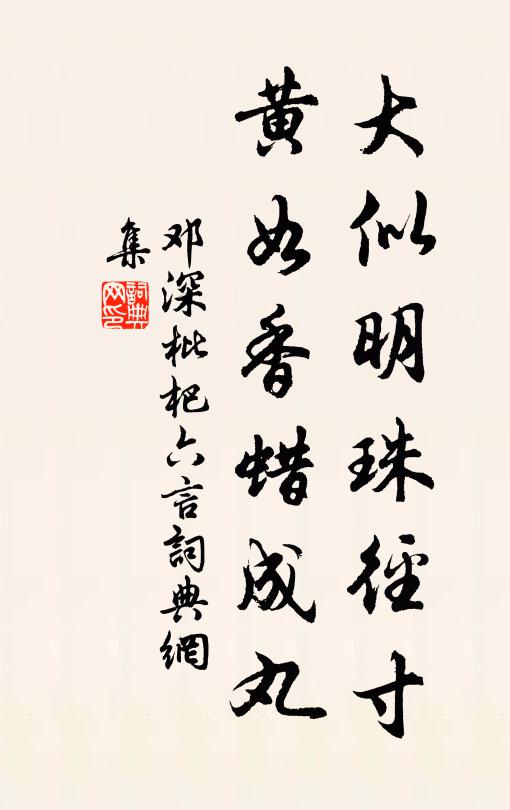 大似明珠徑寸
黄如香蜡成丸
邓深枇杷六言詞典網
集
詞典
网印